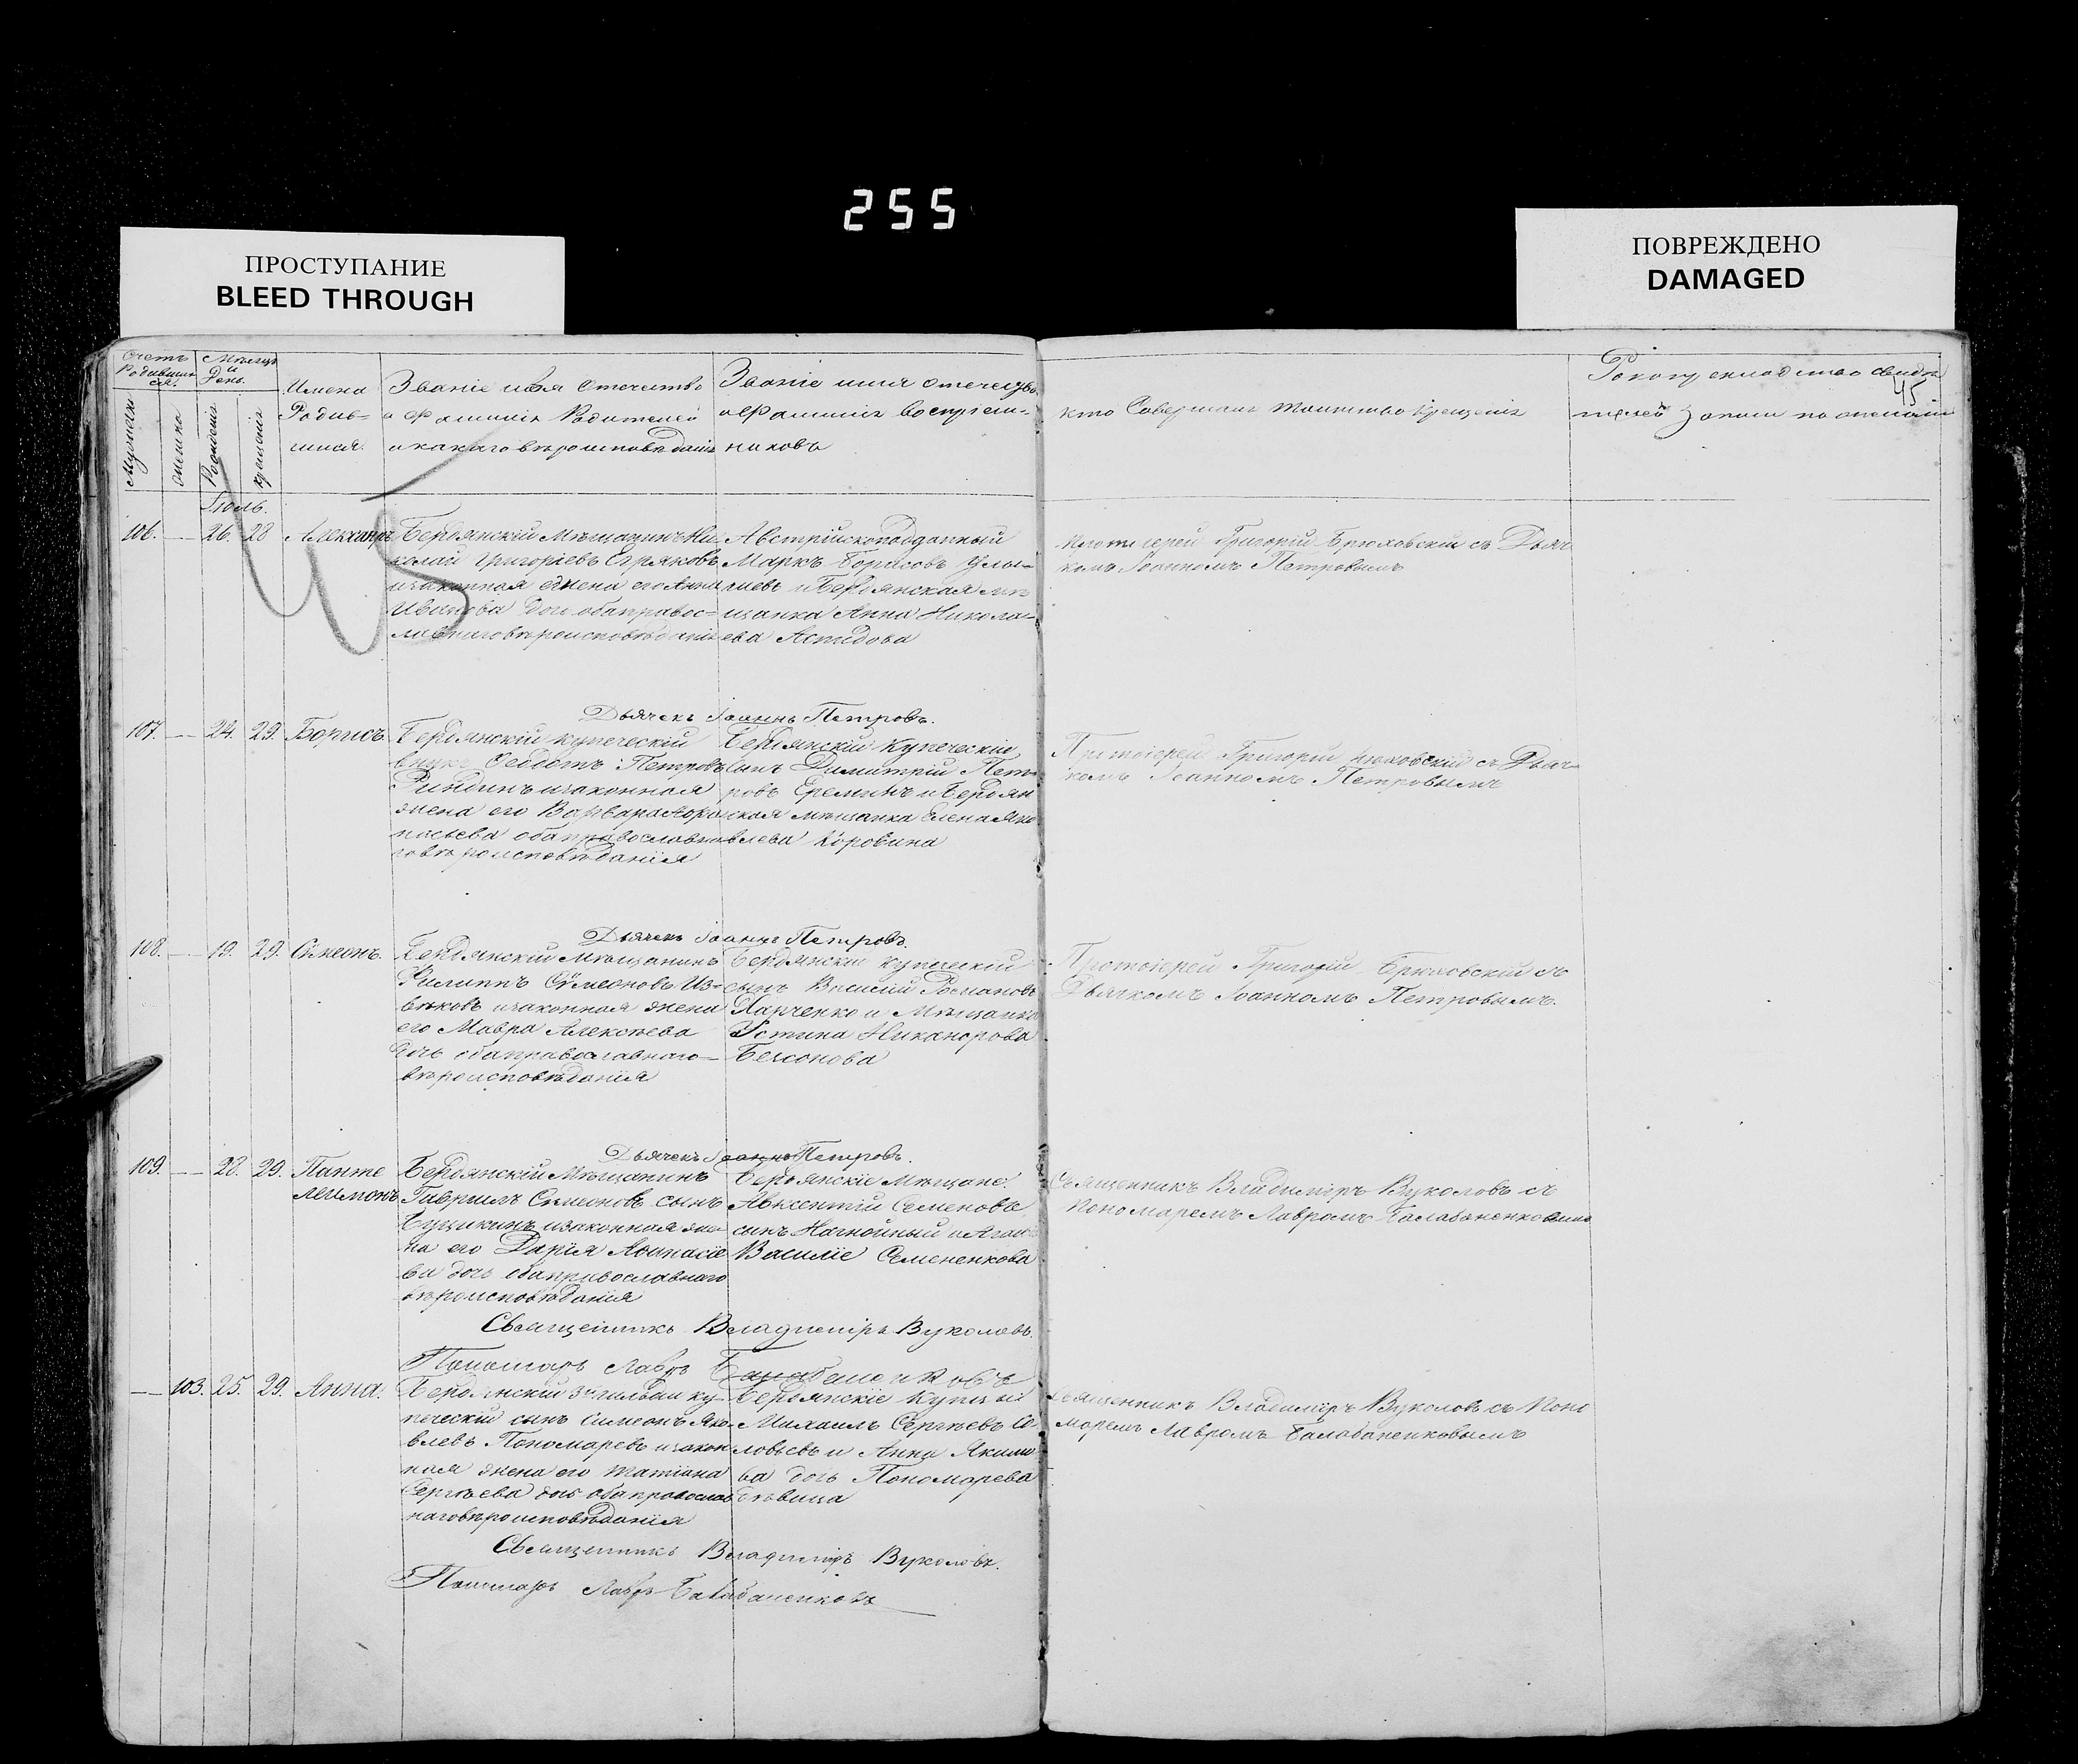 255
ПРОСТУПАНИЕ
BLEED THROUGH
ПОВРЕЖДЕНО
DAMAGED
Счетъ Родившихся.
Мѣсяцъ и День.
Мужеска
женска
Рожденія
крещенія
Имена
Родив-
шихся.
Званіе имя отечество
и фамилія Родителей
и какаго вѣроисповѣданія
Званіе имя отечество
и фамилія воспріем-
никовъ
кто Совершалъ таинство крещенія
свидѣ
телей записи по желанію
45
Іюль.
106. — 26. 28 Александръ
Бердянскій Мѣщанинъ Ни-
колай Григоріевъ
и законная жена его Анна
Иванова дочь оба правос-
лавнаго вѣроисповѣданія
Австрійскоподданный
Маркъ Борисовъ
и Бердянская мѣ
щанка Анна Никола-
ева
Протоіерей Григорій Брюховскій съ Дьяч
комъ Іоанномъ Петровымъ
Дьячекъ Іоаннъ Петровъ.
107. — 24. 29. Борисъ
Бердянскій купеческій
внукъ Петровъ
и законная
жена его Варвара
оба православна
го вѣроисповѣданія
Бердянскій Купеческій
сынъ Димитрій Пет-
ровъ Ереминъ и Бердян
ская мѣщанка Елена Яко
влева Коровина
Протоіерей Григорій Брюховскій съ Дьяч-
комъ Іоанномъ Петровымъ
Дьячекъ Іоаннъ Петровъ.
108. — 19. 29. Симеонъ.
Бердянскій Мѣщанинъ
Филиппъ Сѵмеоновъ Из-
вѣковъ и законная жена
его Мавра Алексѣева
дочь оба православнаго
вѣроисповѣданія
Бердянскій купеческій
сынъ Василій Романовъ
Харченко и Мѣщанка
Устина Никанорова
Безсонова
Протоіерей Григорій Брюховскій съ
Дьячкомъ Іоанномъ Петровымъ.
Дьячекъ Іоаннъ Петровъ.
109. — 28. 29. Панте
леимонъ
Бердянскій Мѣщанинъ
Гавріилъ Симеоновъ сынъ
и законная же-
на его Дарія Аѳанасіе
ва дочь оба православнаго
вѣроисповѣданія
Бердянскіе Мѣщане
Авксентій Семеновъ
сынъ Нагнойный и
Василіе Семененкова
Священникъ Владиміръ Вуколовъ съ
Пономаремъ Лавромъ Балабаненковымъ
Священникъ Владиміръ Вуколовъ.
Пономарь Лавръ Балабаненковъ
— 103. 25. 29. Анна.
Бердянскій 3й гильдіи ку-
печескій сынъ Симеонъ Яко-
влевъ Пономаревъ и закон
ная жена его Татіана
Сергѣева дочь оба православ
наго вѣроисповѣданія
Бердянскіе Купцы
Михаилъ Сергѣевъ Со-
ловьевъ и Анна Якимо
ва дочь Пономарева
дѣвица
Священникъ Владиміръ Вуколовъ съ Поно
моремъ Лавромъ Балабаненковымъ
Священникъ Владиміръ Вуколовъ.
Пономарь Лавръ Балабаненковъ